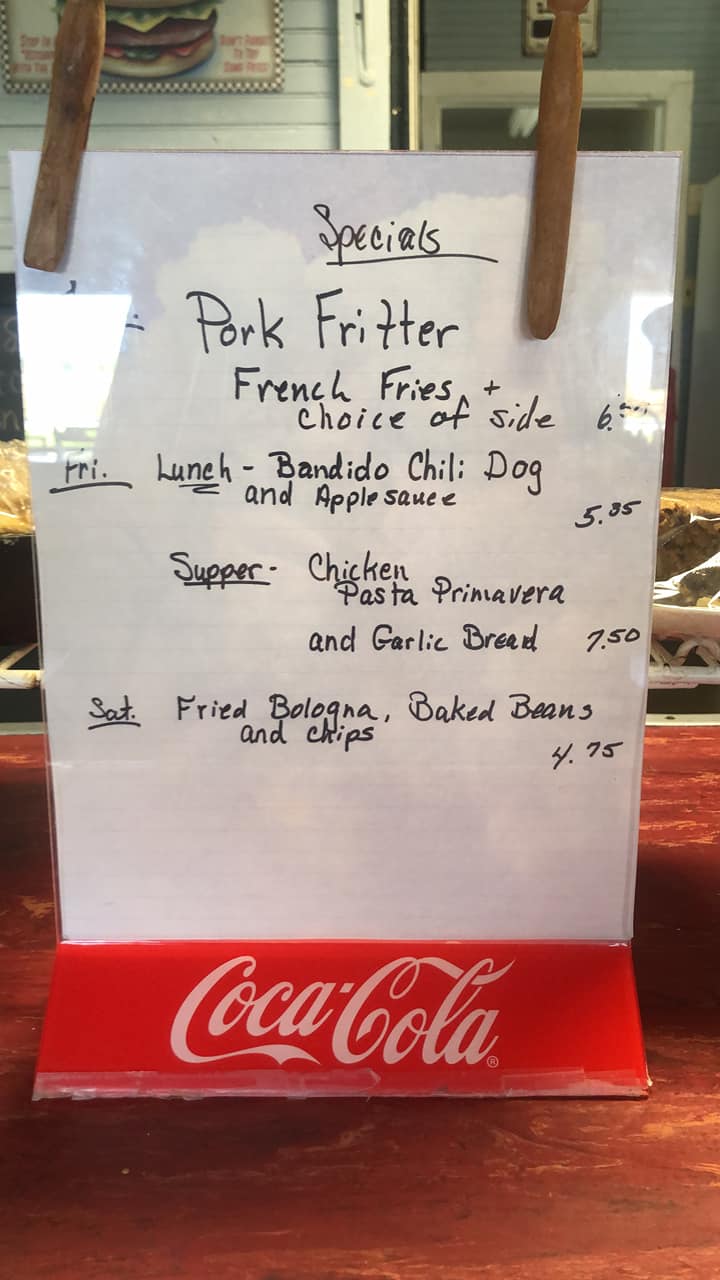 Specials
Pork Fritter
French Fries +
choice of side
Fri. Lunch - Bandido Chili Dog
and Applesauce
5.
Supper - Chicken
Pasta Primavera
and Garlic Bread 7.50
Sat. Fried Bologna, Baked Beans
and chips
4.75
Coca-Cola®